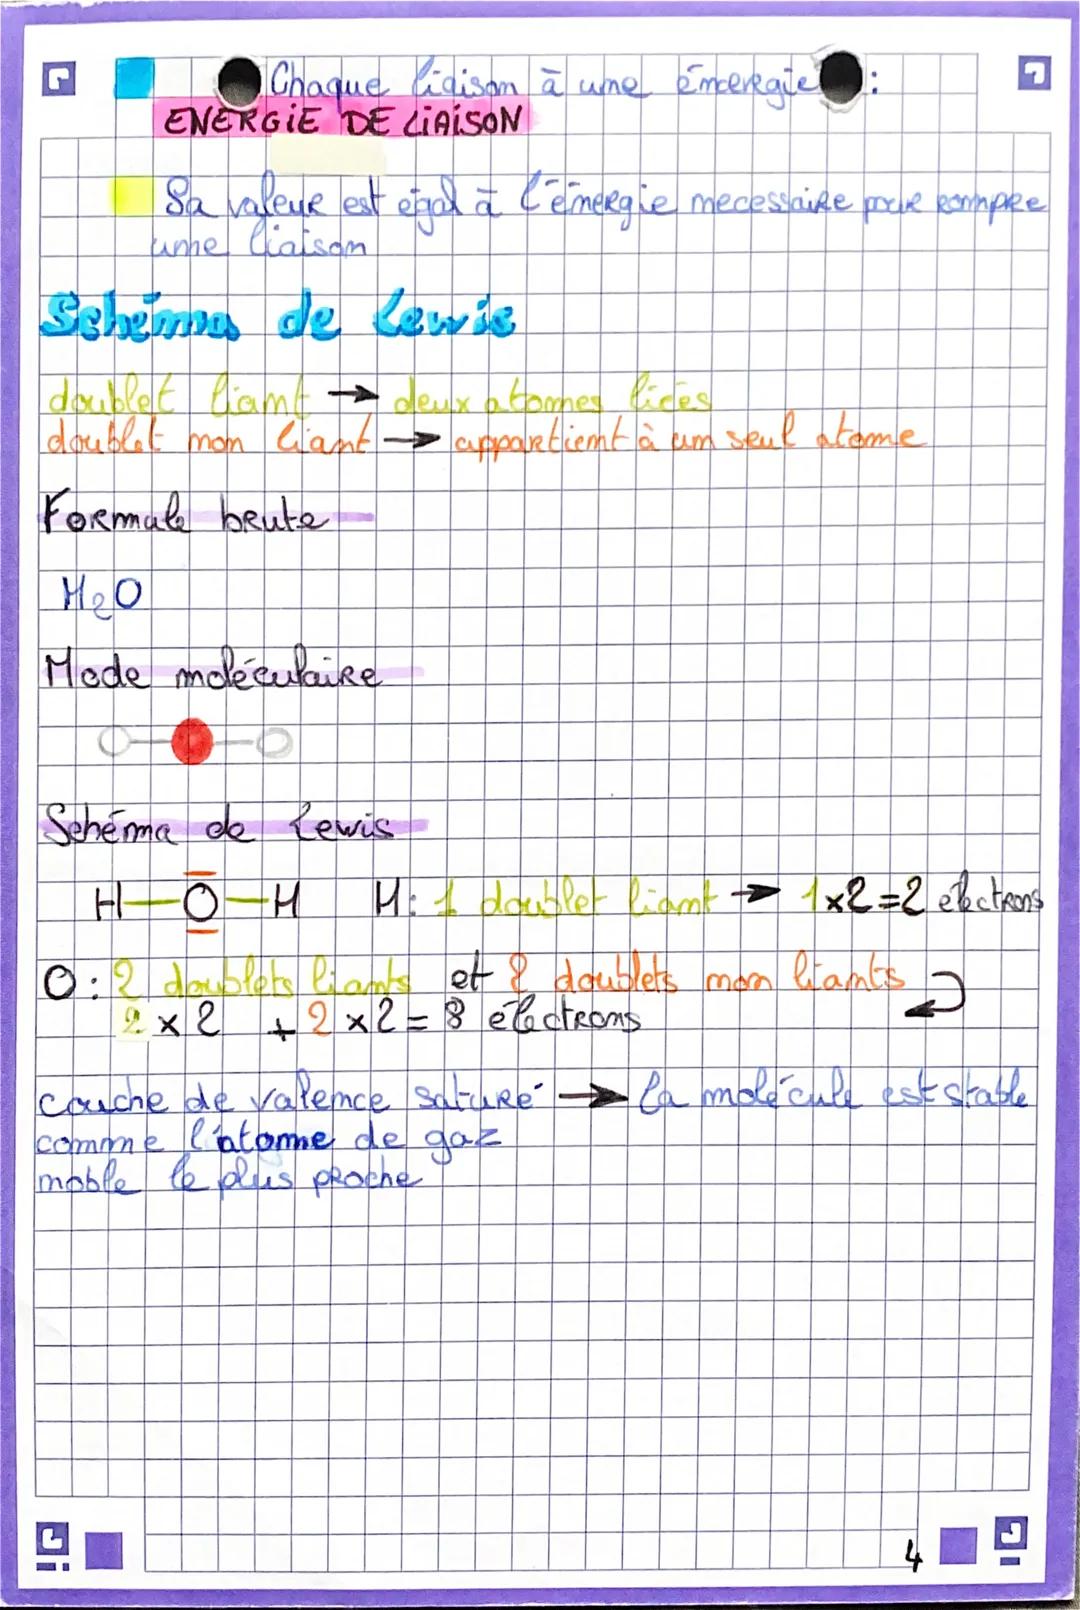 Chaque liaison à une énergie :
ENERGIE DE LIAISON
Sa valeur est égal à l'énergie necessaire pour rompre
une liaison
Schéma de Lewis
doublet liant → deux atomes liées
doublet non liant → appartient à un seul atome
Formule brute
H₂O
Mode moléculaire
Schéma de Lewis
H—O—H H: 1 doublet liant → 1x2=2 électrons
O: 2 doublets liants et 2 doublets non liants
2 x 2 + 2 x 2 = 8 électrons
couche de valence saturé → la molécule est stable
comme l'atome de gaz
noble le plus proche
4